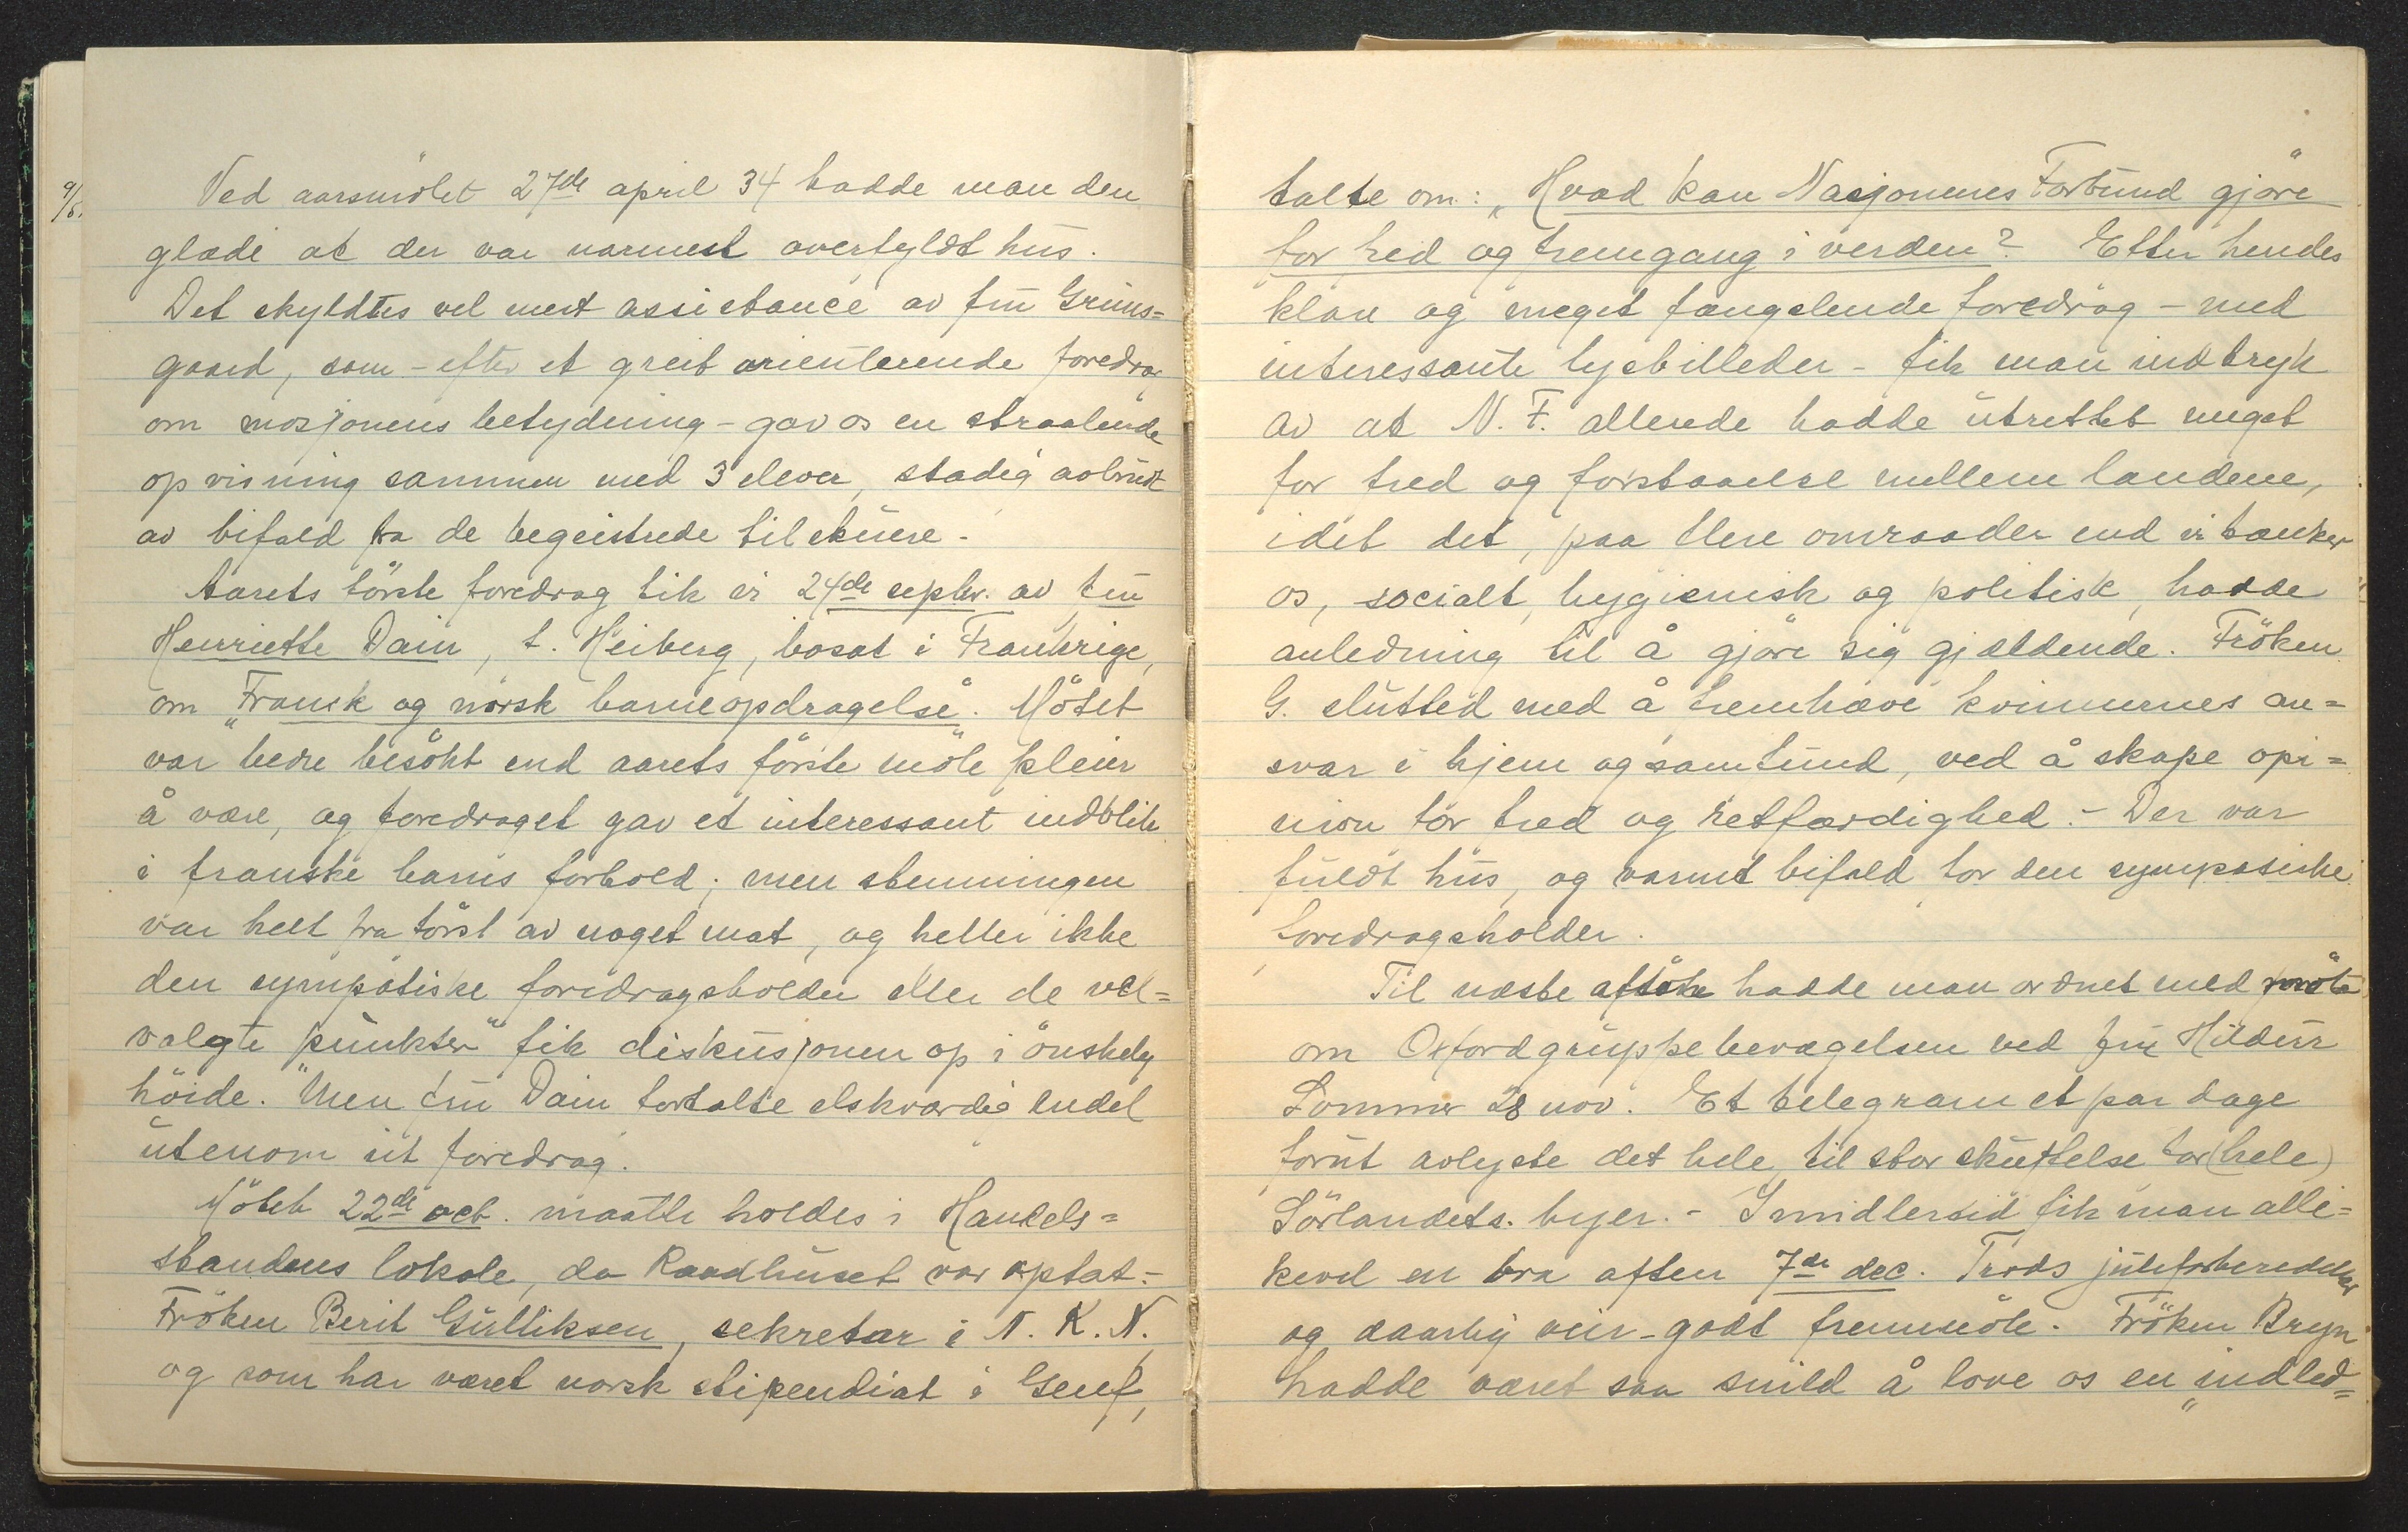 Ved aarsmötet 27de april 34 hadde man den
glæde at der var nærmest overfyldt hus.
Det skyldtes vel mest assistance av fru Grims=
gaard, som - efter et greit orienterende foredrag
om mosjonens betydning - gav os en straalende
opvisning sammen med 3 elever, stadig avbrudt
av bifald fra de begeistrede tilskuere.
Aarets förste foredrag fik vi 24de septbr. av fru
Henriette Dain, f. Heiberg, bosat i Frankrige,
om "Fransk og norsk barneopdragelse". Mötet
var bedre besökt end aarets förste möte pleier
å være, og foredraget gav et interessant indblik
i franske barns forhold; men stemningen
var helt fra först av noget mat, og heller ikke
den sympatiske foredragsholder eller de vel=
valgte "punkter" fik diskusjonen op i önskelig
höide. Men fru Dain fortalte elskværdig endel
utenom sit foredrag.
Mötet 22de oct. maatte holdes i Handels=
standens lokale, da Raadhuset var optat.-
Fröken Berit Gulliksen, sekretær i N. K. N.
og som har været norsk stipendiat i Genf,
talte om: "Hvad kan Nasjonenes Forbund gjöre
for fred og fremgang i verden?" Efter hendes
klare og meget fængslende foredrag - med
interessante lysbilleder - fik man indtryk
av at N. F. allerede hadde utrettet meget
for fred og forstaaelse mellem landene,
idet det, paa flere omraader end vi tænker
os, socialt, hygienisk og politisk, hadde
anledning til å gjöre sig gjældende. Fröken
G. slutted med å fremhæve kvinnernes an=
svar i hjem og samfund, ved å skape opi=
nion for fred og retfærdighed. - Der var
fuldt hus, og varmt bifald for den sympatiske
foredragsholder.
Til næste hadde man ordnet med möte
om Oxfordgruppebevægelsen ved fru Hildur
Sommer 28 nov. Et telegram et par dage
forut avlyste det hele, til stor skuffelse for (hele)
Sörlandets byer. - Imidlertid fik man alli=
kevel en bra aften 7de dec. Trods juleforberedelser
og daarlig veir - godt fremmöte. Fröken Bryn
hadde været saa snild å love os en "indled=